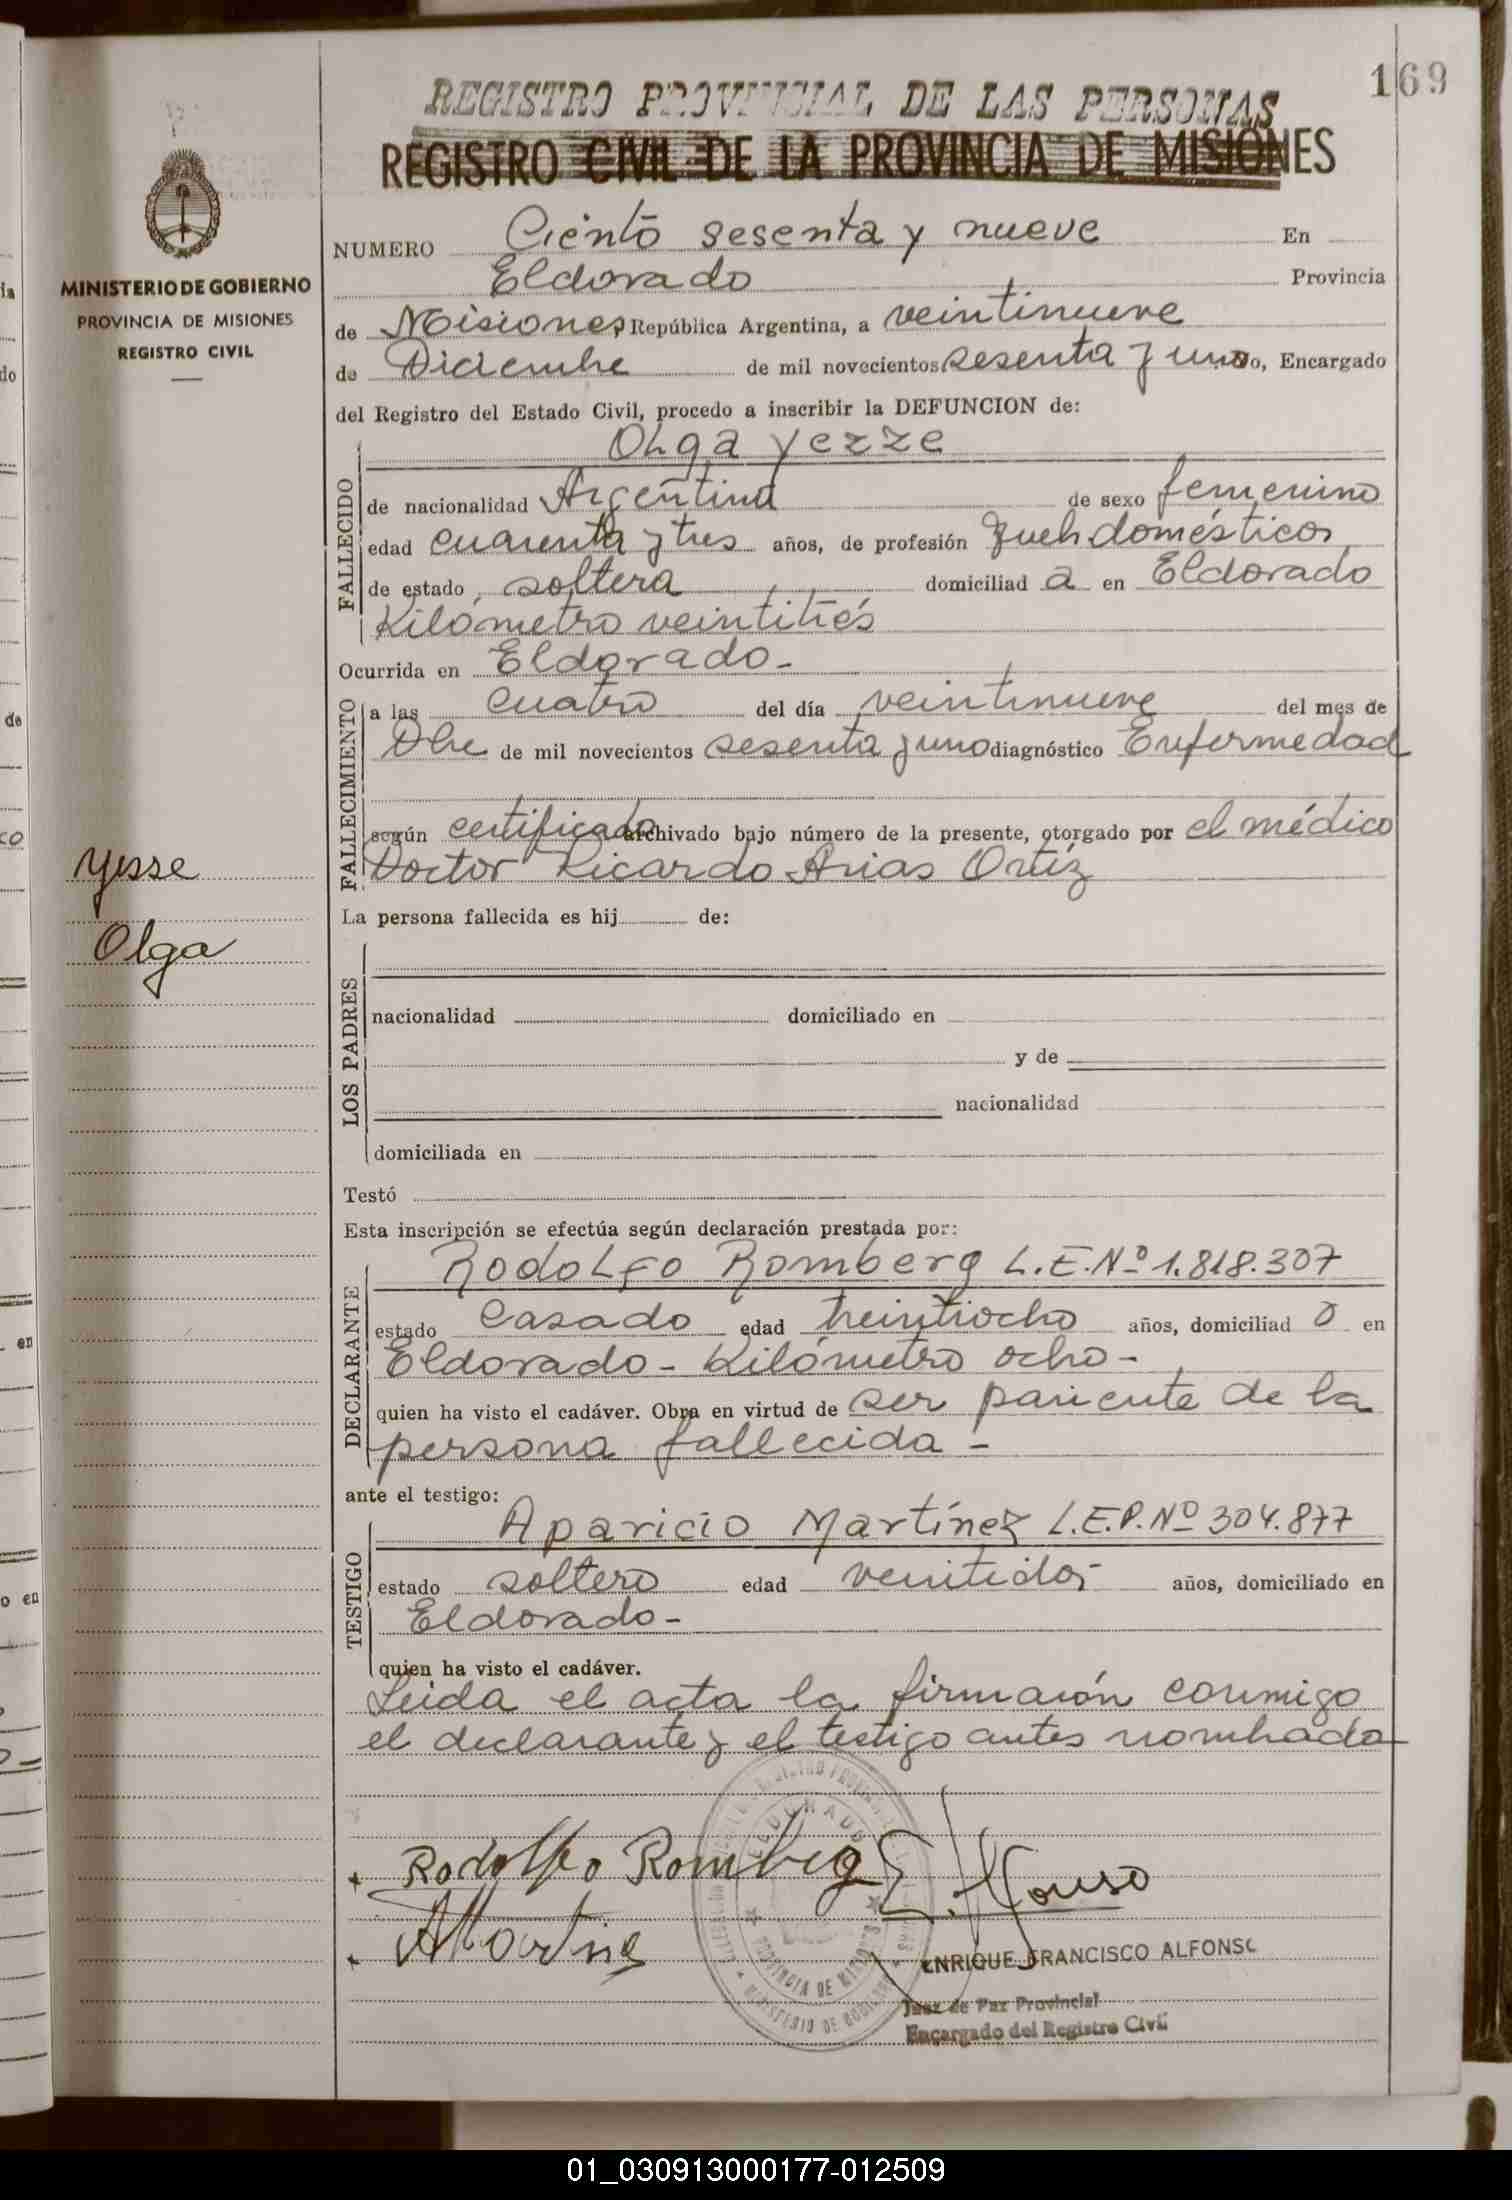 169
REGISTRO PROVINCIAL DE LAS PERSONAS
REGISTRO CIVIL DE LA PROVINCIA DE MISIONES
MINISTERIO DE GOBIERNO
PROVINCIA DE MISIONES
REGISTRO CIVIL
NUMERO Ciento sesenta y nueve En
Eldorado Provincia
de Misiones, República Argentina, a veintinueve
de Diciembre de mil novecientos sesenta y uno, Encargado
del Registro del Estado Civil, procedo a inscribir la DEFUNCION de:
Olga Yezze
FALLECIDO
de nacionalidad Argentina de sexo femenino
edad cuarenta y tres años, de profesión domésticos
de estado soltera domiciliad a en Eldorado
Kilómetro veintitrés
Ocurrida en Eldorado-
FALLECIMIENTO
a las cuatro del día veintinueve del mes de
Dbre de mil novecientos sesenta y uno diagnóstico Enfermedad
según certificado archivado bajo número de la presente, otorgado por el médico
Doctor Ricardo Arias Ortíz
Yesse
Olga
La persona fallecida es hij de:
LOS PADRES
nacionalidad domiciliado en
y de
nacionalidad
domiciliada en
Testó
Esta inscripción se efectúa según declaración prestada por:
Rodolfo Romberg L.E.Nº 1.818.307
DECLARANTE
estado casado edad treintiocho años, domiciliad o en
Eldorado - Kilómetro ocho-
quien ha visto el cadáver. Obra en virtud de ser pariente de la
persona fallecida -
ante el testigo:
Aparicio Martínez L.E.P.Nº 304.877
TESTIGO
estado soltero edad veintidos- años, domiciliado en
Eldorado-
quien ha visto el cadáver.
Leida el acta la firmarón conmigo
el declarante y el testigo antes nombrado
Rodolfo Romberg
E. Alfonso
AMartine
ENRIQUE FRANCISCO ALFONSO
Juez de Paz Provincial
Encargado del Registro Civil
01_030913000177-012509